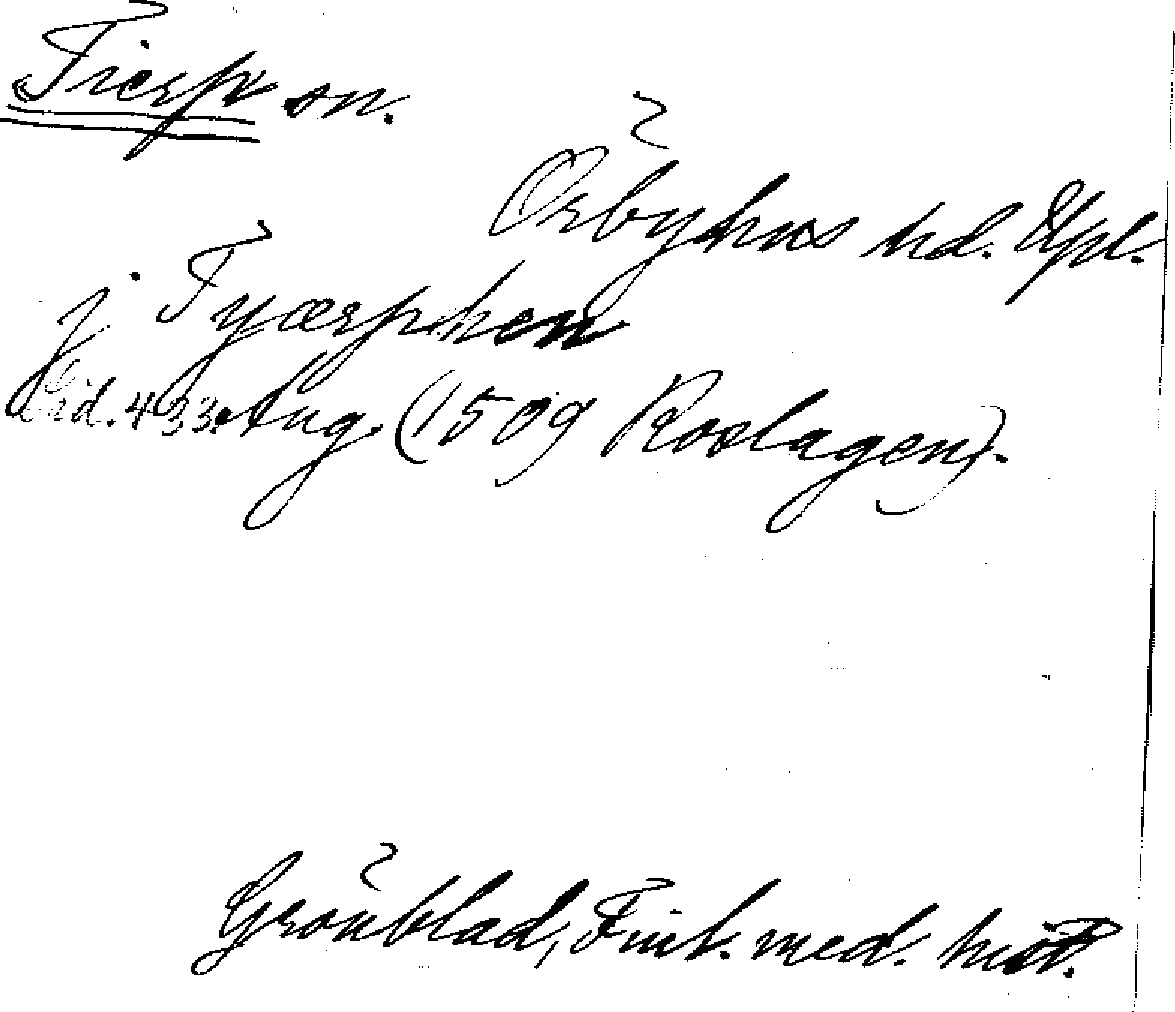 Tierp sn.
Örbyhus hd. Upl.
j. Tyærphen
Sid. 433. Aug. (1509 Roslagen).
Grönblad, Finl. med. hist.